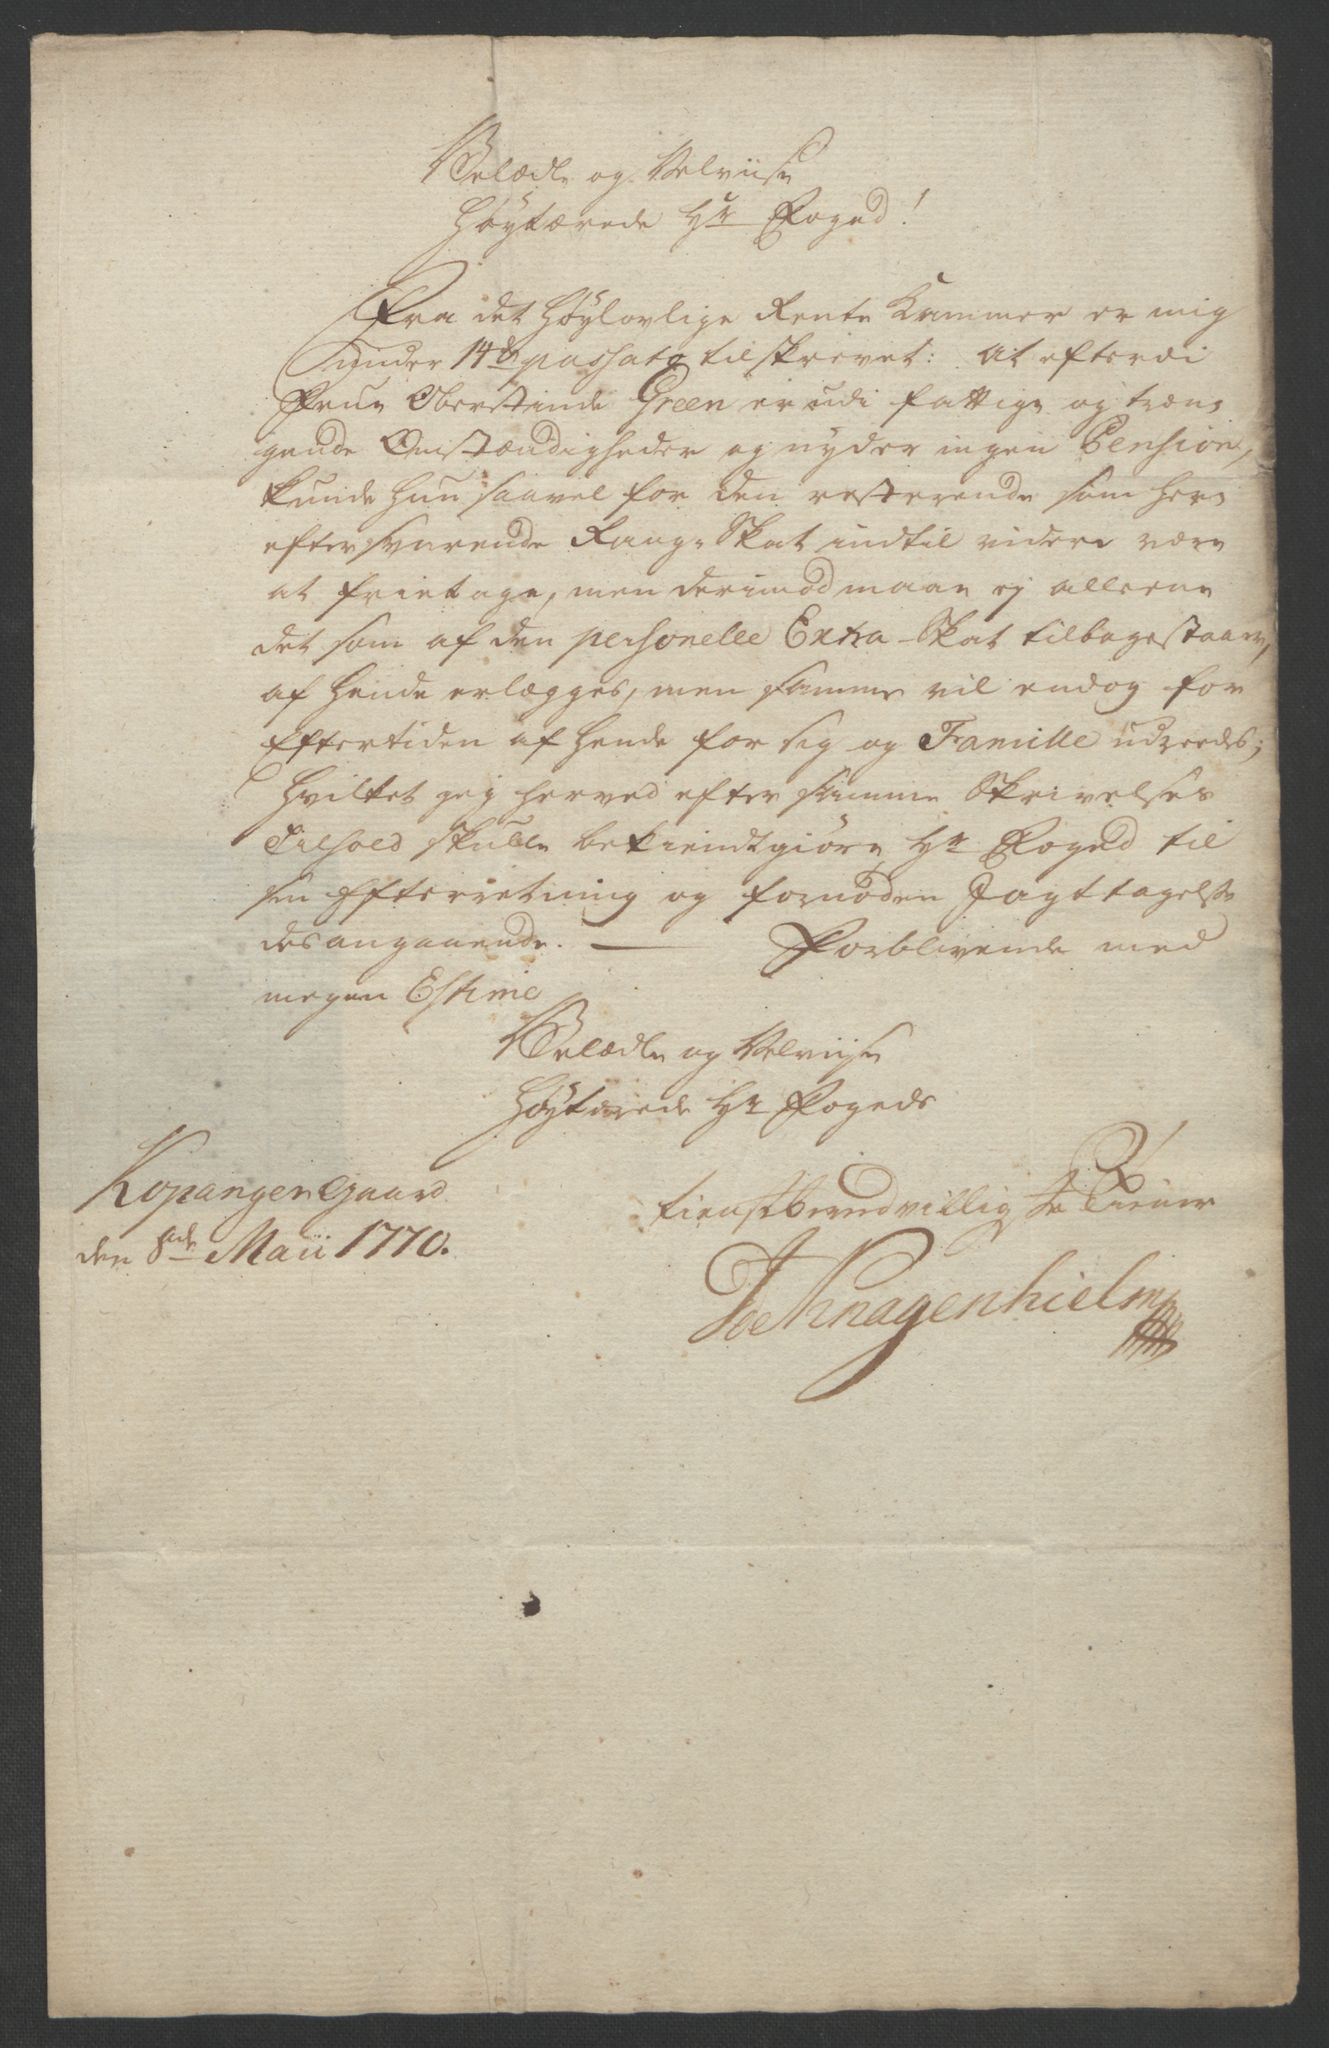 Velædle og Velviise
Høytærede Hr Foged!
Fra det Høylovlige Rente Kammer er mig
under 14de passato tilskrevet: At efterdi
Frue Oberstinde Green er udi fattige og træn-
gende Omstændigheder og nyder ingen Pension,
kunde hun saavel for den resterende som her-
efter svarende Rang-Skat indtil videre være
at frietage, men derimod maae ej alleene
det som af den personelle Extra-Skat tilbagestaaer,
af hende erlægges, men samme vil endog for
Eftertiden af hende for sig og Famille udreedes;
Hvilket jeg herved efter samme Skrivelses
Tilhold skulle bekiendtgiøre Hr Foged til
sin Efterretning og fornøden Jagttagelse
desangaaende. — Forblivende med
megen Estime
Velædle og Velviise
Høytærede Hr Fogeds
Kopanger Gaard
den 8de Maii 1770.
tienstberedvilligste Tiener
de Knagenhielm